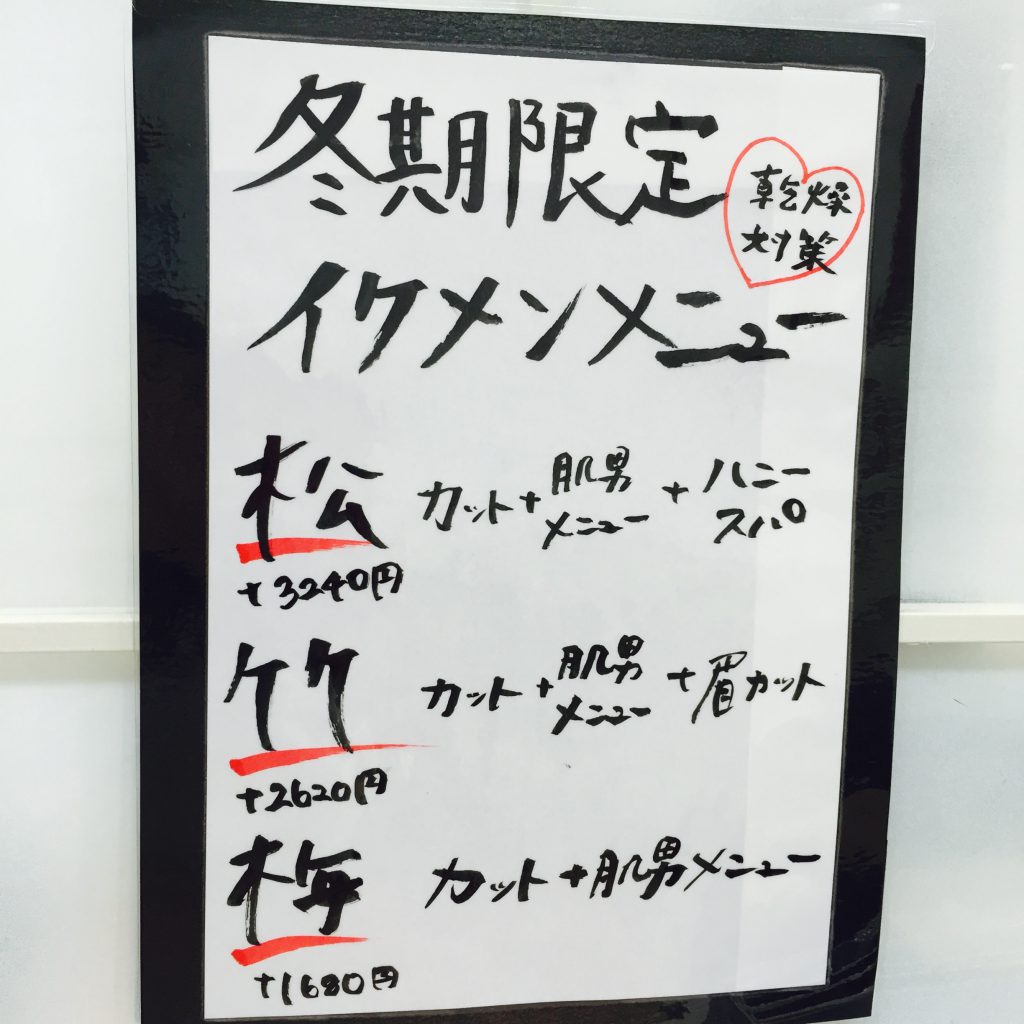 冬期限定
乾燥
対策
イケメンメニュー
松 カット+肌男メニュー+ハニースパ
+3240円
竹 カット+肌男メニュー+眉カット
+2620円
梅 カット+肌男メニュー
+1680円